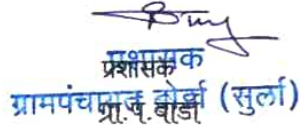 प्रशासक
प्रशासक
ग्रामपंचायत बोर्डा (सुर्ला)
ग्रा.पं.बोर्डा